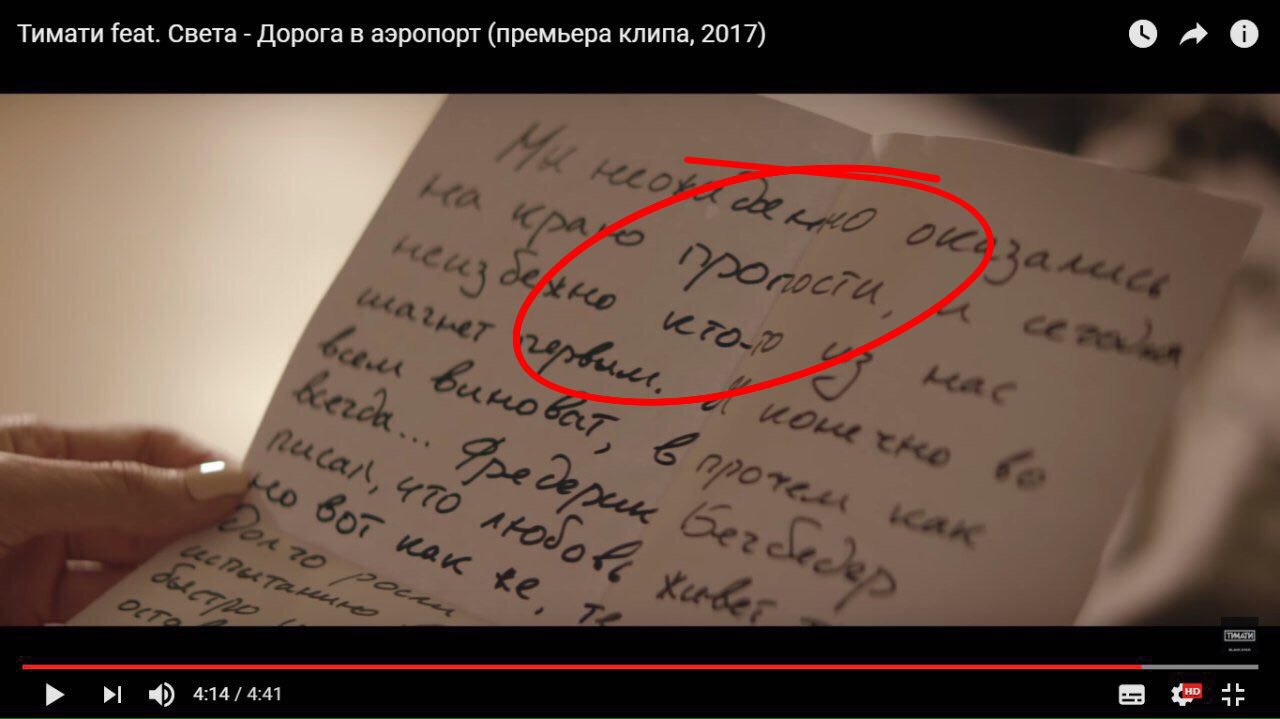 Тимати feat. Света - Дорога в аэропорт (премьера клипа, 2017)
Мы неожиданно оказались
на краю пропости, и сегодня
неизбежно кто-то из нас
шагнет первым. И конечно во
всем виноват, в прочем как
всегда... Фредерик Бегбедер
писал, что любовь живет
но вот как же, те
Долго
испытанию
быстро
ТИМАТИ
BLACK STAR
4:14 / 4:41
HD